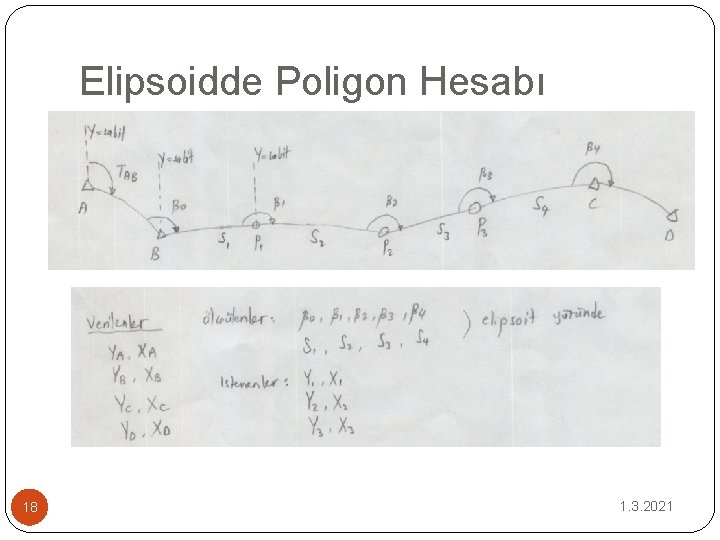 Elipsoidde Poligon Hesabı
Y=sabit
Y=sabit
Y=sabit
TAB
β0
β1
β2
β3
β4
A
B
S1
P1
S2
P2
S3
P3
S4
C
D
Verilenler
YA, XA
YB, XB
YC, XC
YD, XD
ölçülenler: β0, β1, β2, β3, β4 ) elipsoit yüzünde
S1, S2, S3, S4
İstenenler: Y1, X1
Y2, X2
Y3, X3
18
1.3.2021